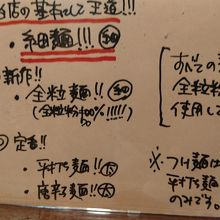 店の基本にして王道!!!
・細麺!!!
新作!!
・全粒麺!!
(全粒粉100%!!!!)
定番!!
・平打ち麺!! 太
麺!! 太
すべての
全粒粉
使用して
※つけ麺は
平打ち麺
のみです。